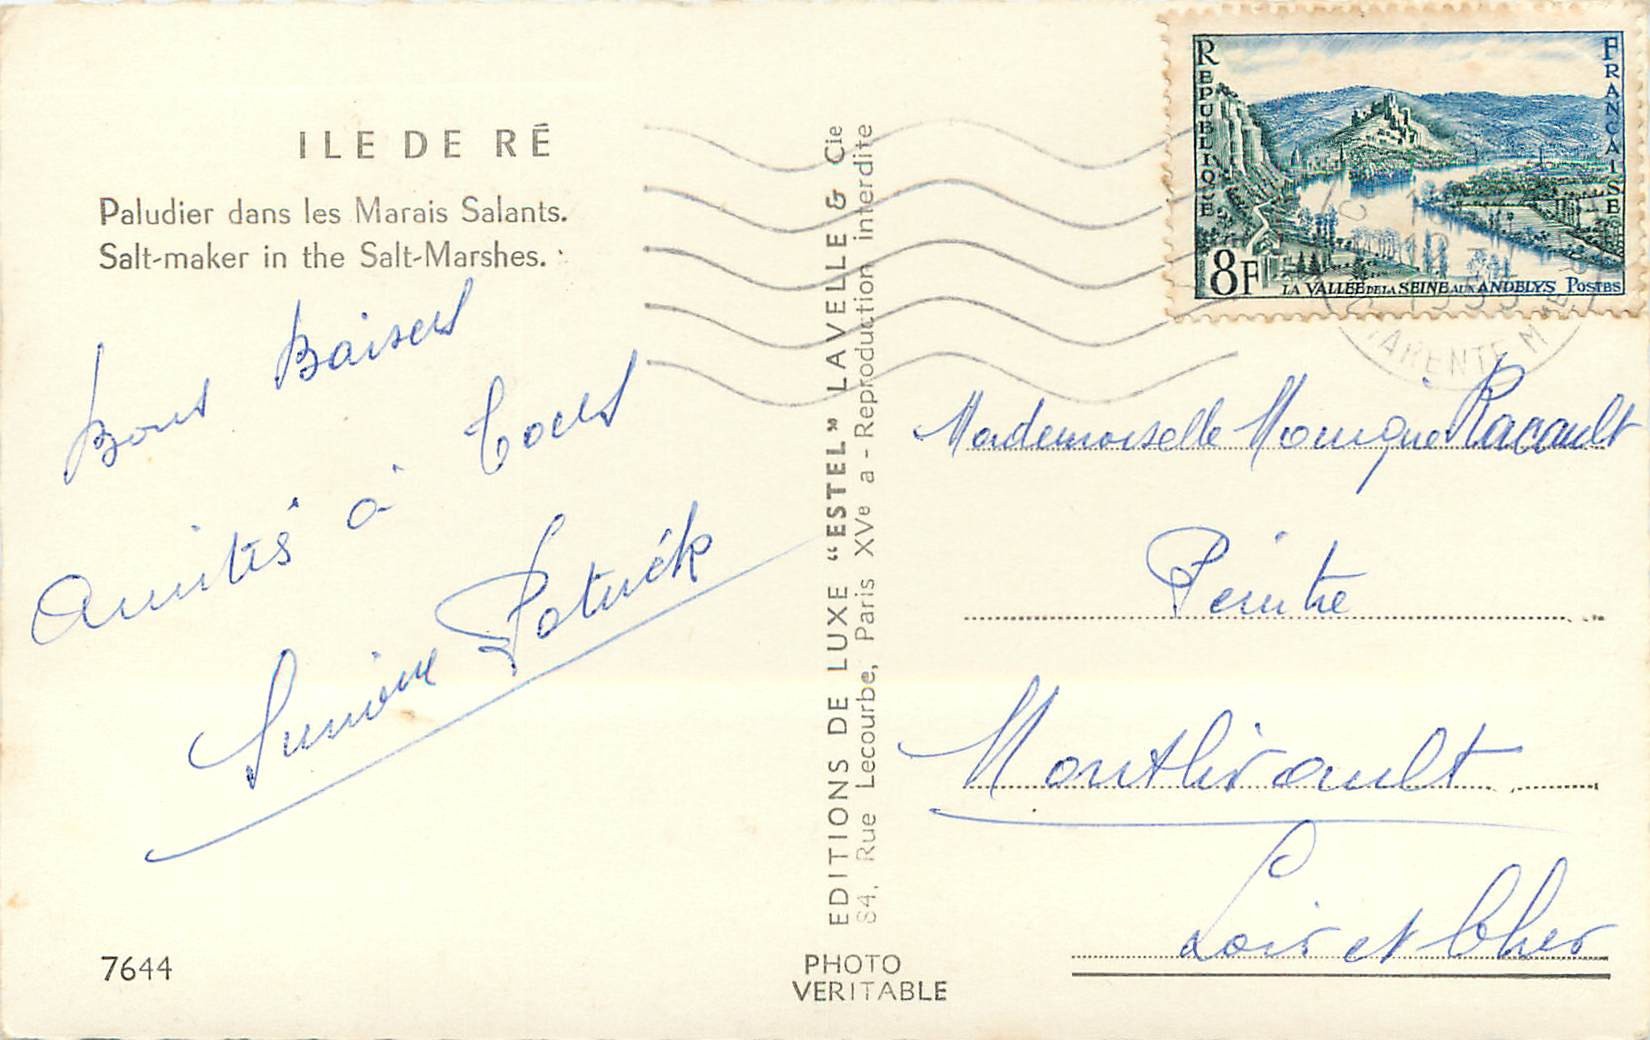 ILE DE RÉ
Paludier dans les Marais Salants.
Salt-maker in the Salt-Marshes.
Bons Baisers
Amitiés à tous
Patrick
7644
EDITIONS DE LUXE "ESTEL" LAVELLE & Cie
84, Rue Lecourbe, Paris XVe a - Reproduction interdite
PHOTO
VERITABLE
REPUBLIQUE
FRANCAISE
8F
LA VALLÉE DE LA SEINE AUX ANDELYS POSTES
CHARENTE MME
Mademoiselle Monique Racault
Peintre
Montlivault
Loir et Cher